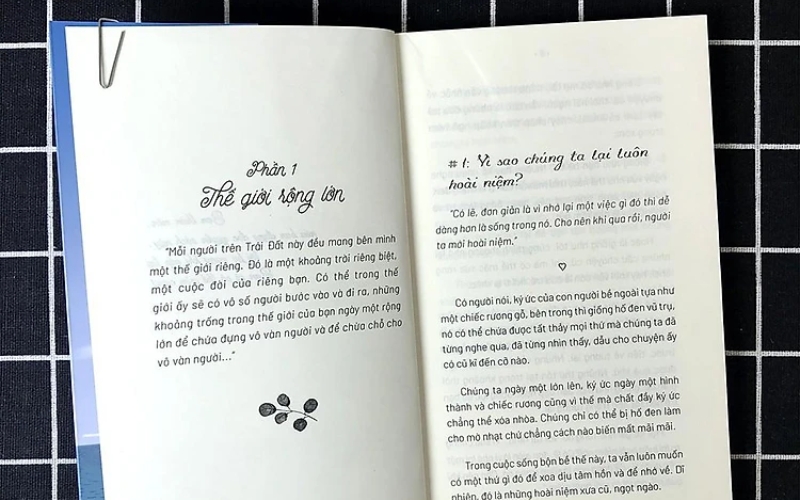 Phần 1
Thế giới rộng lớn
"Mỗi người trên Trái Đất này đều mang bên mình
một thế giới riêng. Đó là một khoảng trời riêng biệt,
một cuộc đời của riêng bạn. Có thể trong thế
giới ấy sẽ có vô số người bước vào và đi ra, những
khoảng trống trong thế giới của bạn ngày một rộng
lớn để chứa đựng vô vàn người và để chừa chỗ cho
vô vàn người..."
# 1: Vì sao chúng ta lại luôn
hoài niệm?
"Có lẽ, đơn giản là vì nhớ lại một việc gì đó thì dễ
dàng hơn là sống trong nó. Cho nên khi qua rồi, người
ta mới hoài niệm."
Có người nói, ký ức của con người bề ngoài tựa như
một chiếc rương gỗ, bên trong thì giống hố đen vũ trụ,
nó có thể chứa được tất thảy mọi thứ mà chúng ta đã
từng nghe qua, đã từng nhìn thấy, dẫu cho chuyện ấy
có cũ kĩ đến cỡ nào.
Chúng ta ngày một lớn lên, ký ức ngày một hình
thành và chiếc rương cũng vì thế mà chất đầy ký ức
chẳng thể xóa nhòa. Chúng chỉ có thể bị hố đen làm
cho mờ nhạt chứ chẳng cách nào biến mất mãi mãi.
Trong cuộc sống bộn bề thế này, ta vẫn luôn muốn
có một thứ gì đó để xoa dịu tâm hồn và để nhớ về. Dĩ
nhiên, đó là những hoài niệm xưa cũ, ngọt ngào.